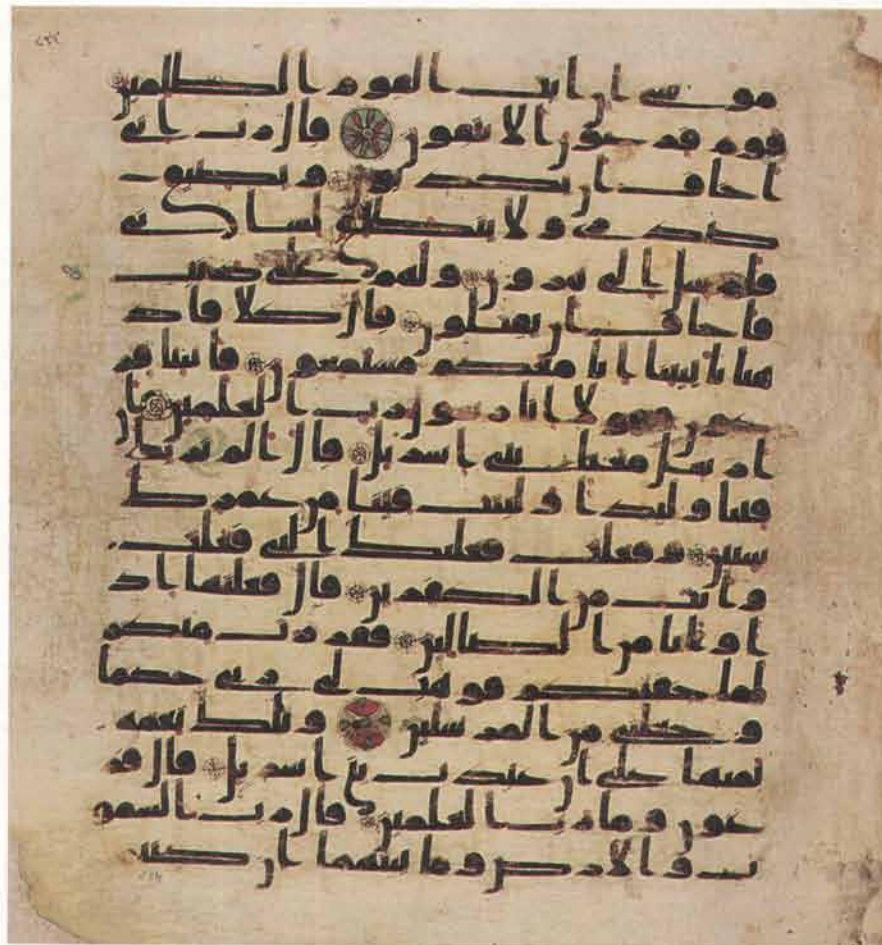 موسى ان ايت القوم الظلمين
قوم فرعون الا يتقون قال رب انى
اخاف ان يكذبون ويضيق
صدرى ولا ينطلق لسانى
فارسل الى هرون ولهم على ذنب
فاخاف ان يقتلون قال كلا فاذ
هبا بايتنا انا معكم مستمعون فاتيا فر
عون فقولا انا رسول رب العلمين ان
ارسل معنا بنى اسريل قال الم نربك
فينا وليدا ولبثت فينا من عمرك
سنين وفعلت فعلتك التى فعلت
وانت من الكفرين قال فعلتها اذ
ا وانا من الضالين ففررت منكم
لما خفتكم فوهب لى ربى حكما
وجعلنى من المرسلين وتلك نعمة
تمنها على ان عبدت بنى اسريل قال فر
عون وما رب العلمين قال رب السمو
ت والارض وما بينهما ان كنتم